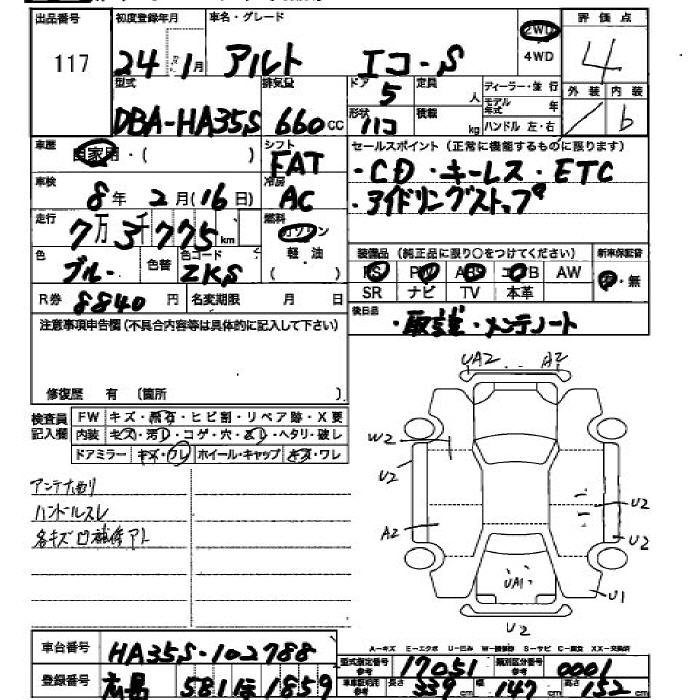 出品番号 初度登録年月 車名・グレード 2WD 4WD 評価点
117 24・1月 アルト エコ-S 4
型式 排気量 ドア 5 定員 人 ディーラー・並行 外装 内装
DBA-HA35S 660cc 形状 ハコ 積載 kg モデル年式 年 ハンドル 左・右 b
車歴 自家用・( ) シフト FAT セールスポイント(正常に機能するものに限ります)
車検 8年2月(16日) 冷房 AC ・CD・キーレス・ETC
・アイドリングストップ
走行 7万3千775km 燃料 ガソリン 軽油
色 ブルー 色替 色コード ZKS 装備品(純正品に限り○をつけてください) 新車保証書
PS PW ABS エアB AW 有・無
R券 8840円 名変期限 月 日 SR ナビ TV 本革
注意事項申告欄(不具合内容等は具体的に記入して下さい) 後日品 ・取説・メンテノート
修復歴 有 〔箇所 〕
検査員記入欄 FW キズ・飛石・ヒビ割・リペア跡・X要
内装 キズ・汚レ・コゲ・穴・スレ・ヘタリ・破レ
ドアミラー キズ・ワレ ホイール・キャップ キズ・ワレ
UA2 A2
W2
U2
U2
A2
U2
UA1
U1
U2
ハンドルスレ
各キズ凹補修アト
A-キズ E-エクボ U-凹み W-補修跡 S-サビ C-腐食 XX-交換済
車台番号 HA35S-102788 型式指定番号 17051 類別区分番号 0001
登録番号 広島 581 1859 長さ 339cm 幅 147cm 高さ 152cm